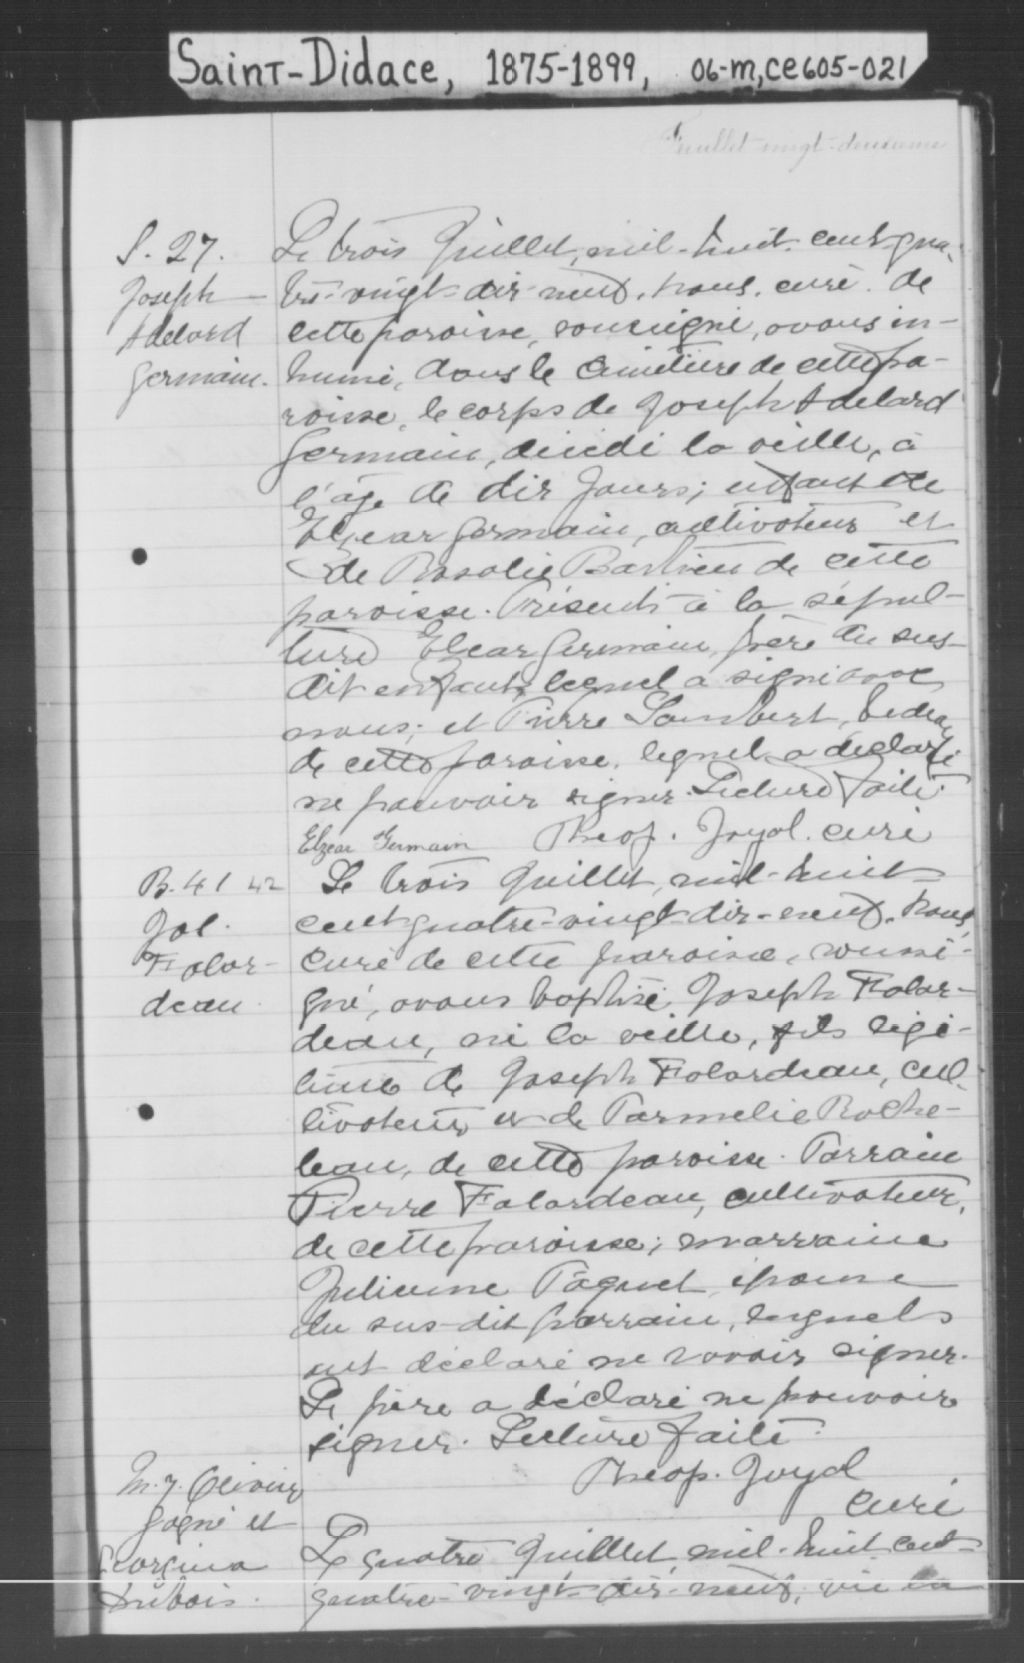 Saint-Didace, 1875-1899, 06-m,ce605-021
Feuillet vingt-deuxième
S. 27.
Joseph
Adelard
Germain.
Le trois Juillet, mil-huit-cent-qua-
tre-vingt-dix-neuf, nous, curé de
cette paroisse, soussigné, avons in-
humé, dans le cimetière de cette pa-
roisse, le corps de Joseph Adelard
Germain, décédé la veille, à
l'âge de dix jours; enfant de
Elzear Germain, cultivateur et
de Rosalie Barbieu de cette
paroisse. Présents à la sépul-
ture Elzear Germain, père du sus-
dit enfant, lequel a signé avec
nous; et Pierre Lambert, bedeau
de cette paroisse, lequel a déclaré
ne pouvoir signer. Lecture faite.
Elzear Germain Theop. Joyal. curé
B. 41 42
Jos.
Falar-
deau
Le trois Juillet, mil-huit
cent quatre-vingt-dix-neuf, nous,
curé de cette paroisse, soussi-
gné, avons baptisé Joseph Falar-
deau, né la veille, fils légi-
time de Joseph Falardeau, cul-
tivateur, et de Parmelie Roche-
leau, de cette paroisse. Parrain
Pierre Falardeau, cultivateur,
de cette paroisse; marraine
Julienne Paquet, épouse
du sus-dit parrain, lesquels
ont déclaré ne savoir signer.
Le père a déclaré ne pouvoir
signer. Lecture faite.
Theop. Joyal
curé
M. 7. Olivier
Gagné et
Georgina
Dubois.
Le quatre Juillet, mil-huit cent-
quatre-vingt-dix-neuf, vu la